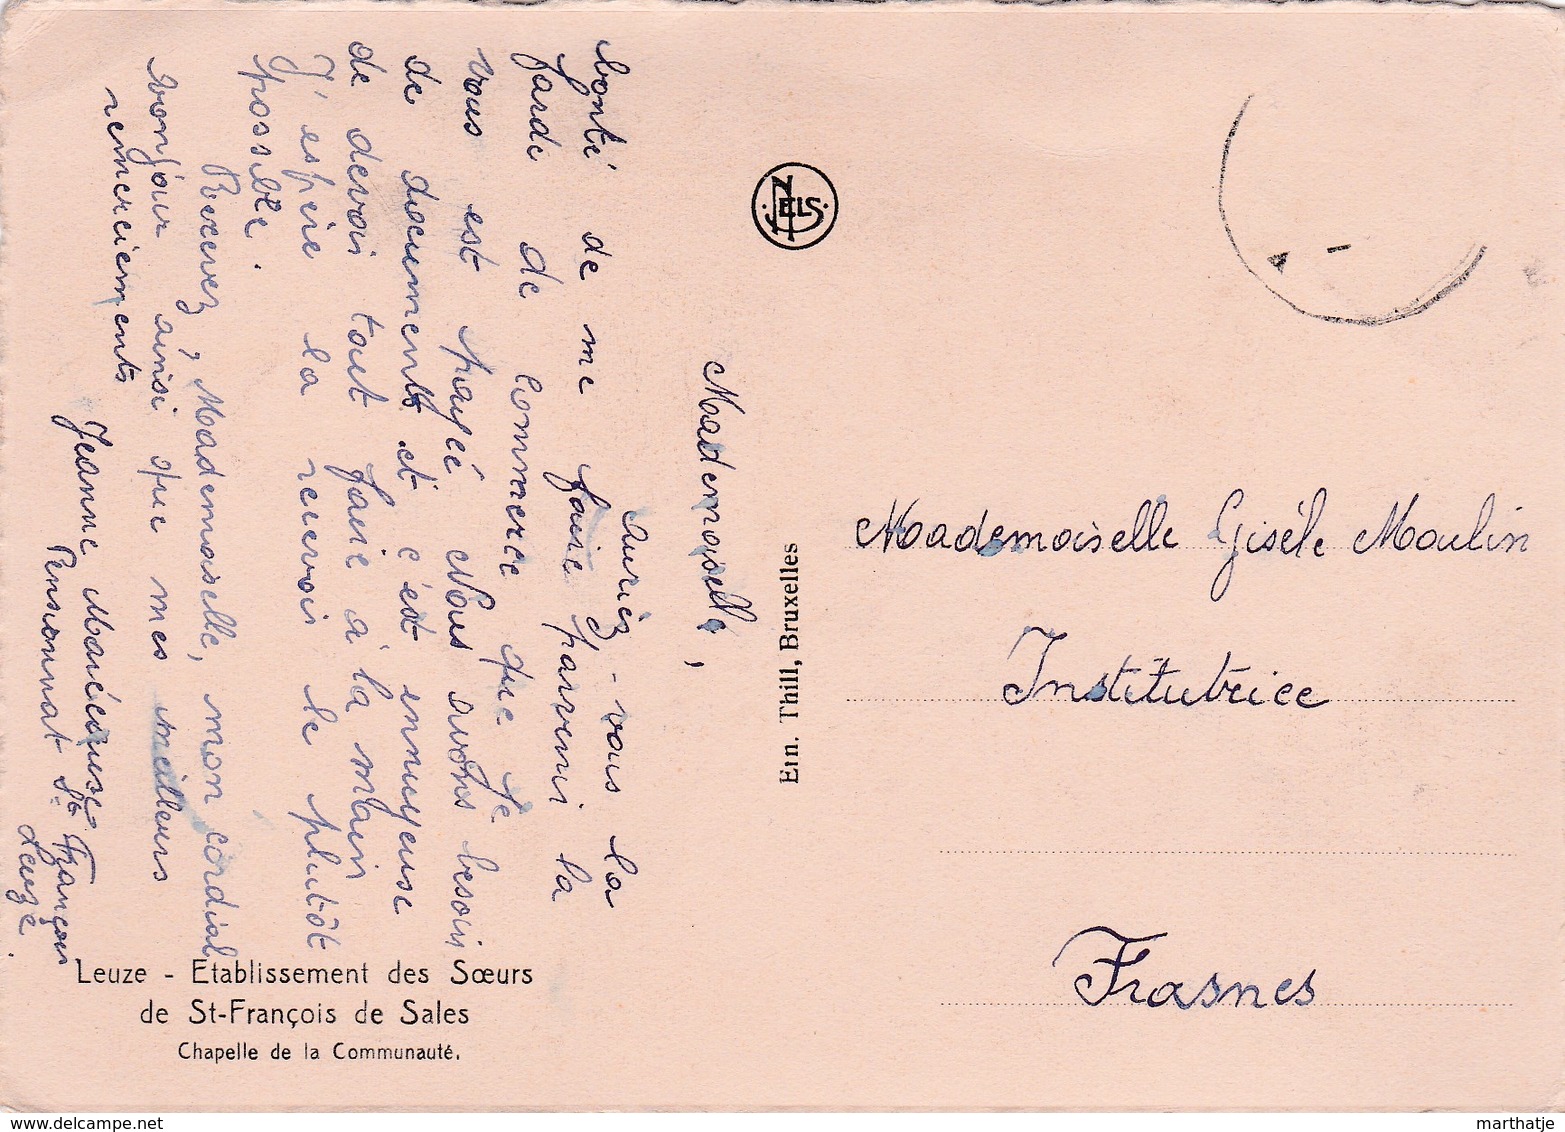 Mademoiselle,
Auriez-vous la
bonté de me faire parvenir la
farde de commerce que je
vous est payée Nous avons besoin
de documents et c'est ennuyeuse
de devoir tout faire à la main
J'espère la recevoir le plutôt
possible.
Recevez, Mademoiselle, mon cordial
bonjour ainsi que mes meilleurs
remerciements
Jeanne
Pensionnat St François
Leuze
Leuze - Etablissement des Sœurs
de St-François de Sales
Chapelle de la Communauté.
NELS
Ern. Thill, Bruxelles
Mademoiselle Gisèle Moulin
Institutrice
Frasnes
www.delcampe.net
marthatje